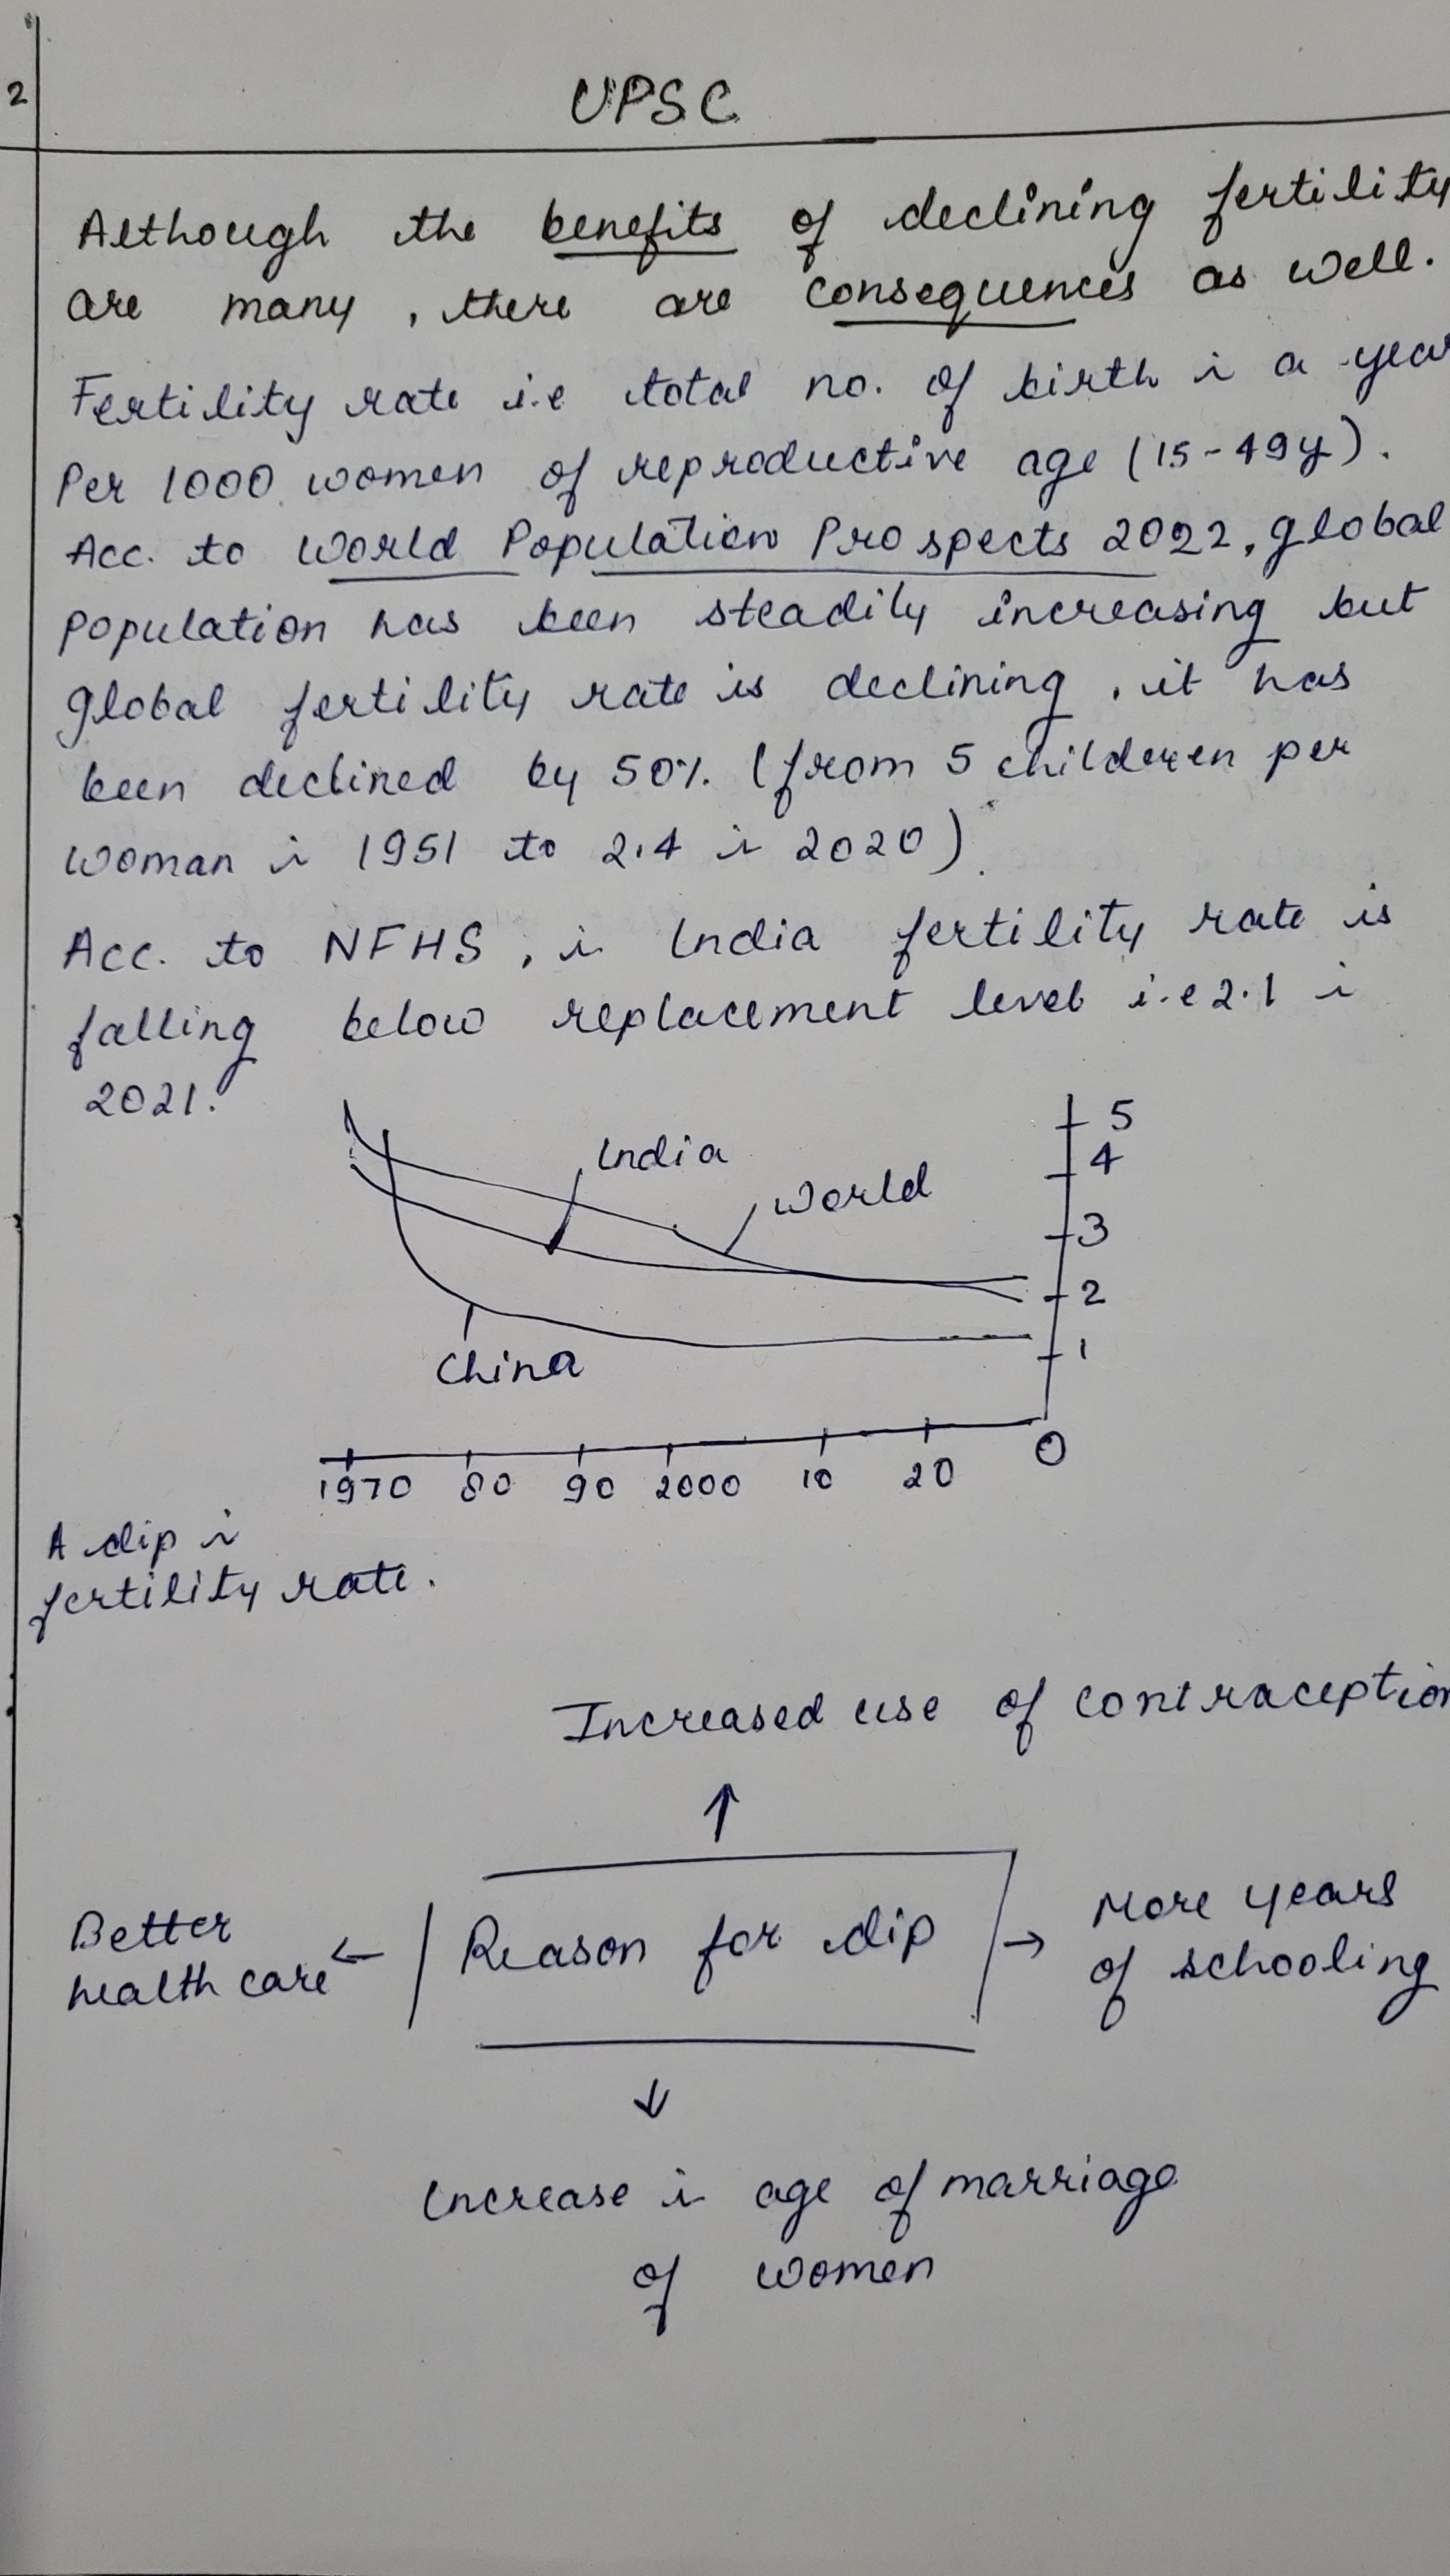 2
UPSC
Although the benefits of declining fertility
are many, there are consequences as well.
Fertility rate i.e total no. of birth i a year
Per 1000 women of reproductive age (15-49y).
Acc. to World Population Prospects 2022, global
population has been steadily increasing but
global fertility rate is declining, it has
been declined by 50% (from 5 childeren per
woman i 1951 to 2.4 i 2020).
Acc. to NFHS, i India fertility rate is
falling below replacement level i.e 2.1 i
2021.
5
India
4
World
3
2
China
1
0
1970 80 90 2000 10 20
A dip i
fertility rate.
Increased use of contraception
Better
health care
Reason for dip
More years
of schooling
Increase i age of marriage
of women